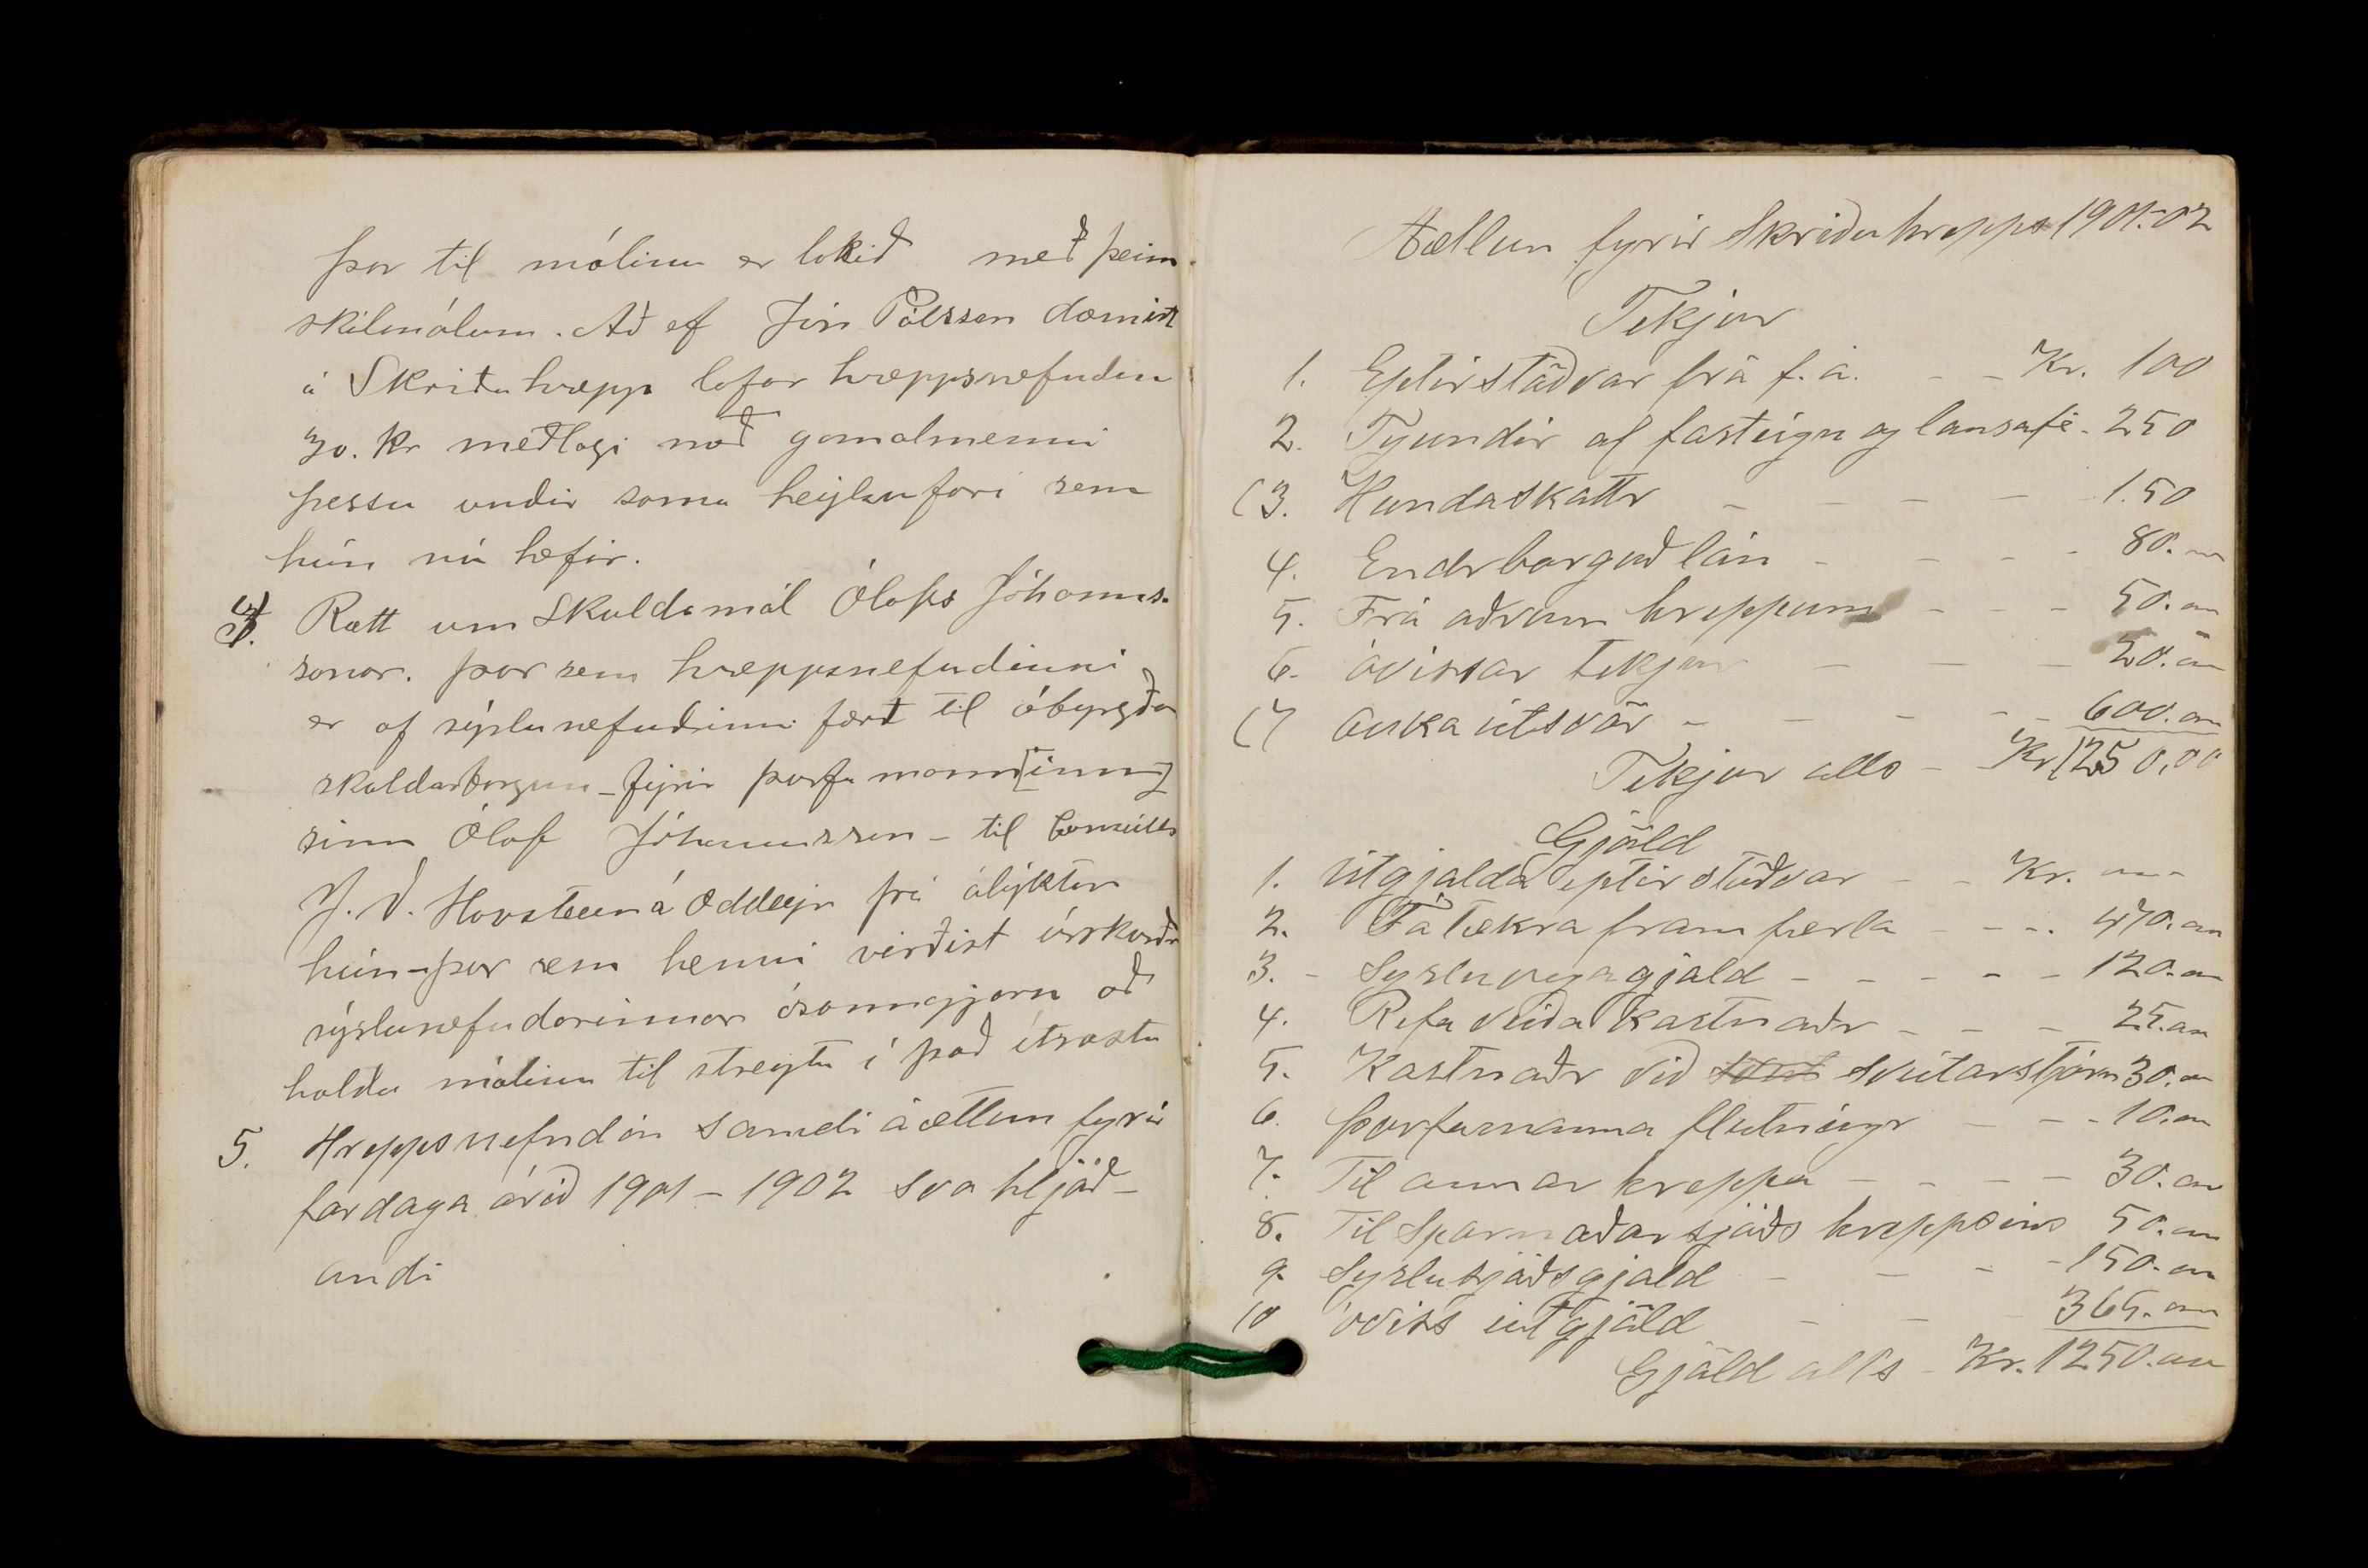 þar til málinu er lokið með þeim
skilmálum. Að ef Jón Pálsson dæmist
á Skriðuhrepp lofar hreppsnefndin
30. Kr meðlagi með gamalmenni
þessu undir sama heilsufari sem
hún nú hefir.
4. Rætt um Skuldamál Ólafs Jóhanns-
sonar. þar sem hreppsnefndinni
er af sýslunefndinni fært til ábyrgðar
skuldarborgun - fyrir þurfamann[inn]
sinn Ólaf Jóhannsson - til Consuls
J. V. Havsteen á Oddeyri þá ályktar
hún - þar sem henni virðist úrskurðr
sýslunefndarinnar ósanngjarn að
halda málinu til streytu í það ítrasta
5. Hreppsnefndin samdi áætlun fyrir
fardaga árið 1901 - 1902 svo hljóð-
andi
Áætlun fyrir Skriðuhrepps 1901-02
Tekjur
1. Eptirstöðvar frá f. á. - - Kr. 100
2. Tyundir af fasteign og lausafé - 250
(3. Hundaskattr - - - - 1.50
4. Endrborguð lán - - - - 80. "
5. Frá öðrum hreppum - - - 50. "
6. óvissar tekjur - - - 20. "
(7 auka útsvör - - - - - 600. "
Tekjur alls - Kr 1250,00
Gjöld
1. Útgjalda eptirstöðvar - - Kr. "
2. Fátækra framfærla - - - - 470. "
3. - Sysluvegagjald - - - - - 120. "
4. Refaveiða kostnaðr - - - 25. "
5. Kostnaðr við sveitarstjórn 30. "
6. þurfamanna flutningr - - - 10. "
7. Til annar hreppa - - - - 30. "
8. Til Sparnaðarsjóðs hreppsins 50. "
9. Syslusjóðsgjald - - - - 150. "
10 óviss útgjöld - - - 365. "
Gjöld alls - Kr. 1250. "